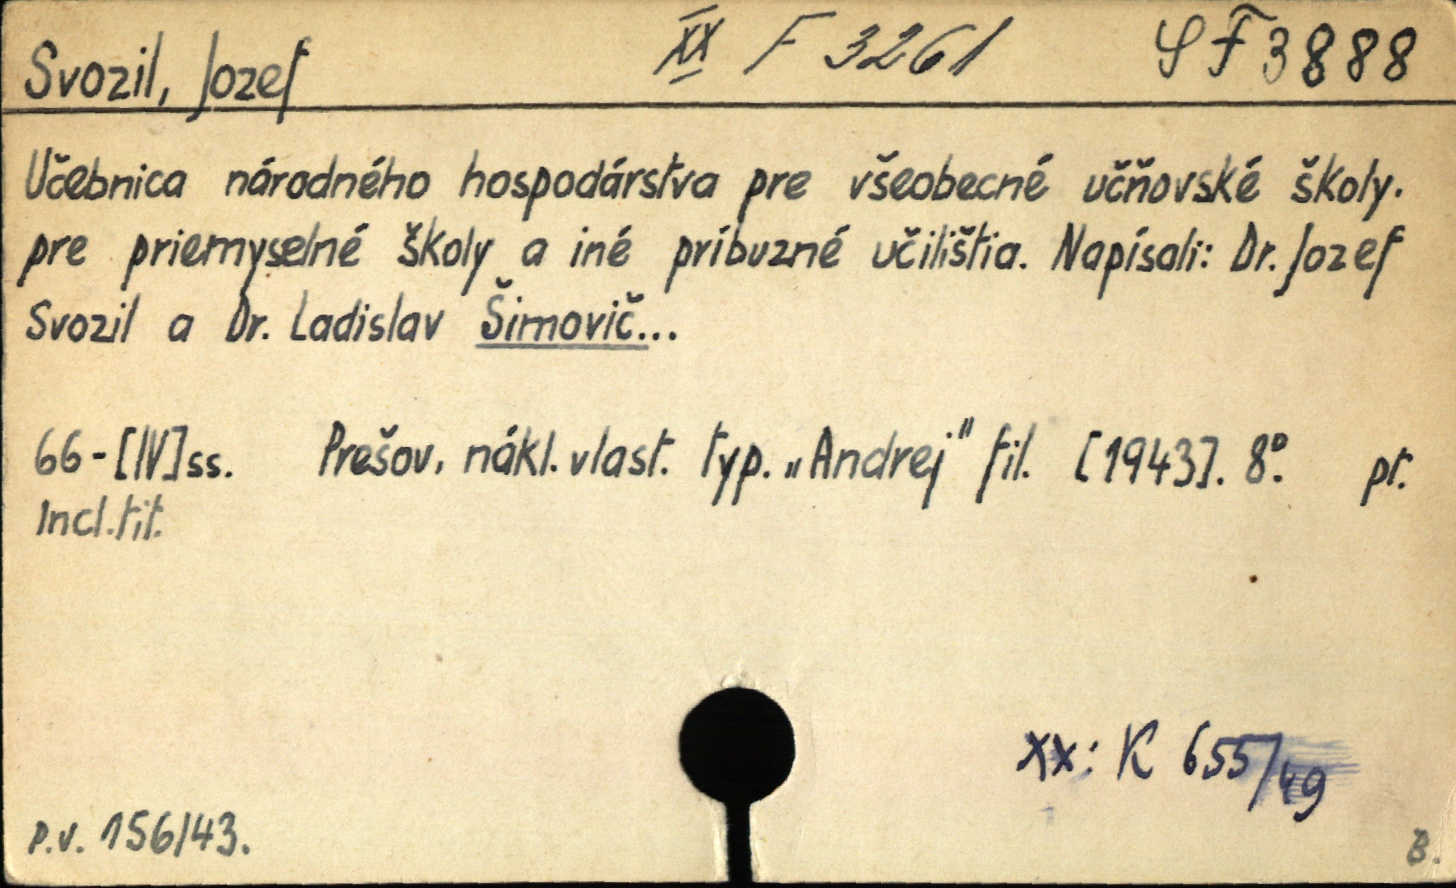 Svozil, Jozef XX F 3261 SF 3888
Učebnica národného hospodárstva pre všeobecné učňovské školy.
pre priemyselné školy a iné príbuzné učilištia. Napísali: Dr. Jozef
Svozil a Dr. Ladislav Šimovič...
66-[IV]ss. Prešov, nákl. vlast. typ. „Andrej" fil. [1943]. 8°. pt.
Incl. tit.
xx: K 655/49
p.v. 156/43.
B.